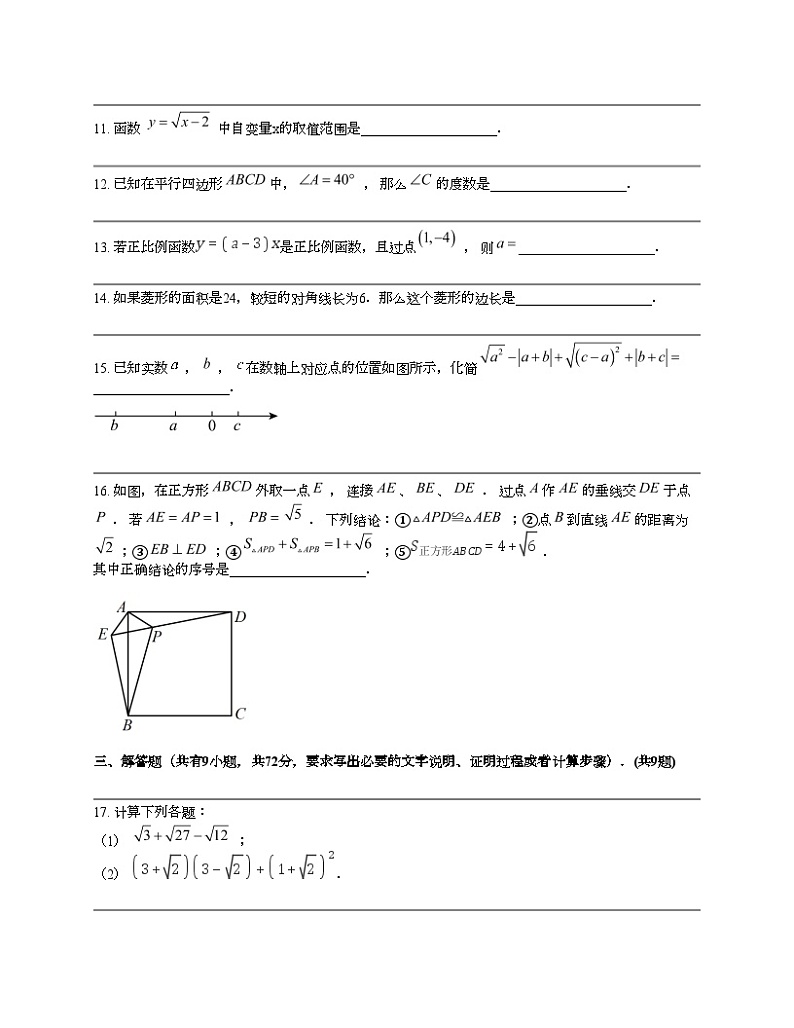 11. 函数 y=√(x-2) 中自变量x的取值范围是____________________.
12. 已知在平行四边形ABCD中，∠A=40° ，那么∠C的度数是____________________.
13. 若正比例函数y=(a-3)x是正比例函数，且过点(1,-4) ，则a=____________________.
14. 如果菱形的面积是24，较短的对角线长为6．那么这个菱形的边长是____________________.
15. 已知实数a ，b ，c在数轴上对应点的位置如图所示，化简√(a²)-|a+b|+√((c-a)²)+|b+c|=
____________________.
b a 0 c
16. 如图，在正方形ABCD外取一点E ，连接AE、BE、DE ．过点A作AE的垂线交DE于点
P ．若AE=AP=1 ，PB=√5 ．下列结论：①△APD≌△AEB ；②点B到直线AE的距离为
√2 ；③EB⊥ED ；④S△APD+S△APB=1+√6 ；⑤S正方形ABCD=4+√6 .
其中正确结论的序号是____________________.
A
D
E
P
B
C
三、解答题（共有9小题，共72分，要求写出必要的文字说明、证明过程或者计算步骤）．(共9题)
17. 计算下列各题：
（1） √3+√27-√12 ；
（2） (3+√2)(3-√2)+(1+√2)².